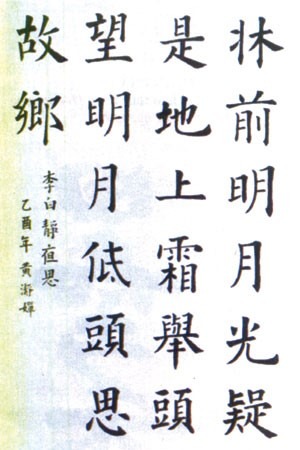 牀前明月光疑
是地上霜舉頭
望明月低頭思
故鄉
李白靜夜思
乙酉年黄